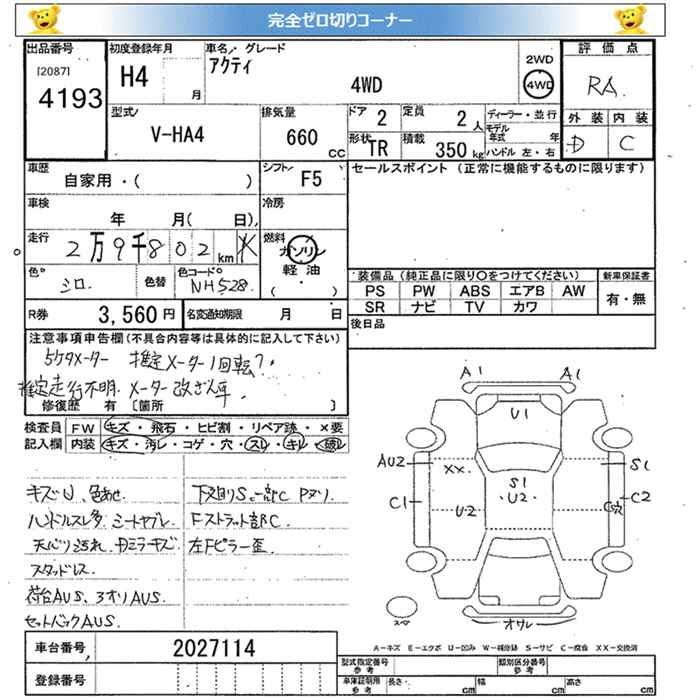 完全ゼロ切りコーナー
出品番号 初度登録年月 車名/グレード 評価点
[2087] 4193
H4 月
アクティ
4WD
2WD
4WD
RA
外装 内装
D C
型式
V-HA4
排気量
660 CC
ドア 2
定員 2 人
形状 TR
積載 350 kg
ディーラー・並行
モデル年式 年
ハンドル 左・右
車歴
自家用・( )
シフト F5
セールスポイント(正常に機能するものに限ります)
車検
年 月( 日)
冷房
走行
2万9千802km
燃料
ガソリン
軽油
( )
色 シロ
色替
色コードNo
NH528
装備品(純正品に限り○をつけてください) 新車保証書
PS PW ABS エアB AW 有・無
SR ナビ TV カワ
R券 3,560円
名変通知期限 月 日
後日品
注意事項申告欄(不具合内容等は具体的に記入して下さい)
5ケタメーター 推定メーター1回転?
推定走行不明 メーター改ざん車
修復歴 有[箇所 ]
検査員記入欄
FW キズ・飛石・ヒビ割・リペア跡・×要
内装 キズ・汚レ・コゲ・穴・スレ・キレ・破レ
キズU、色あせ 下回りS、一部C Pヌリ
ハンドルスレ多 シートヤブレ Fストラット部C
天バリ汚れ カミラーキズ 左Fピラー歪
スタッドレス
荷台AUS、3オリAUS
セットバックAUS
A1 A1
U1
AU2 XX S1 S1
U2
C1 U2 C穴 C2
スペ
オサレ
A-キズ E-エクボ U-凹み W-補修跡 S-サビ C-腐食 XX-交換済
車台番号 2027114
登録番号
型式指定番号 参考
類別区分番号 参考
車庫証明用 参考 長さ: cm 幅 cm 高さ cm